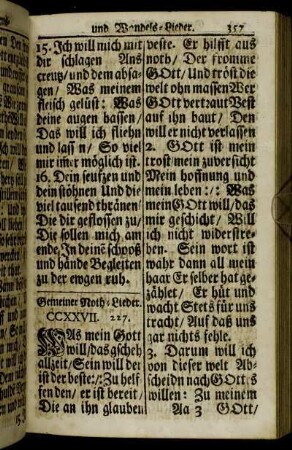 und Wandels-Lieder. 357
15. Ich will mich mit
dir schlagen Ans
creutz/ und dem absa-
gen/ Was meinem
fleisch gelüst: Was
deine augen hassen/
Das will ich fliehn
und lassen/ So viel
mir im̃er möglich ist.
16. Dein seufzen und
dein stöhnen Und die
viel tausend thränen/
Die dir geflossen zu/
Die sollen mich am
ende, In deinē schooß
und hände Begleiten
zu der ewgen ruh.
Gemeine Noth-Lieder.
CCXXVII. 227.
WAs mein Gott
will/das gscheh
allzeit/ Sein will der
ist der beste:/: Zu helf-
fen den/ er ist bereit/
Die an ihn glauben
veste. Er hilfft aus
noth/ Der fromme
GOtt/ Und tröst die
welt ohn massen Wer
GOtt vertraut Vest
auf ihn baut/ Den
will er nicht verlassen
2. GOtt ist mein
trost mein zuversicht
Mein hoffnung und
mein leben:/: Was
mein GOtt will/ das
mir geschicht/ Will
ich nicht widerstre-
ben. Sein wort ist
wahr dann all mein
haar Er selber hat ge-
zählet/ Er hüt und
wacht Stets für uns
tracht/ Auf daß uns
gar nichts fehle.
3. Darum will ich
von dieser welt Ab-
scheidn nach GOttes
willen: Zu meinem
Aa 3 GOtt/